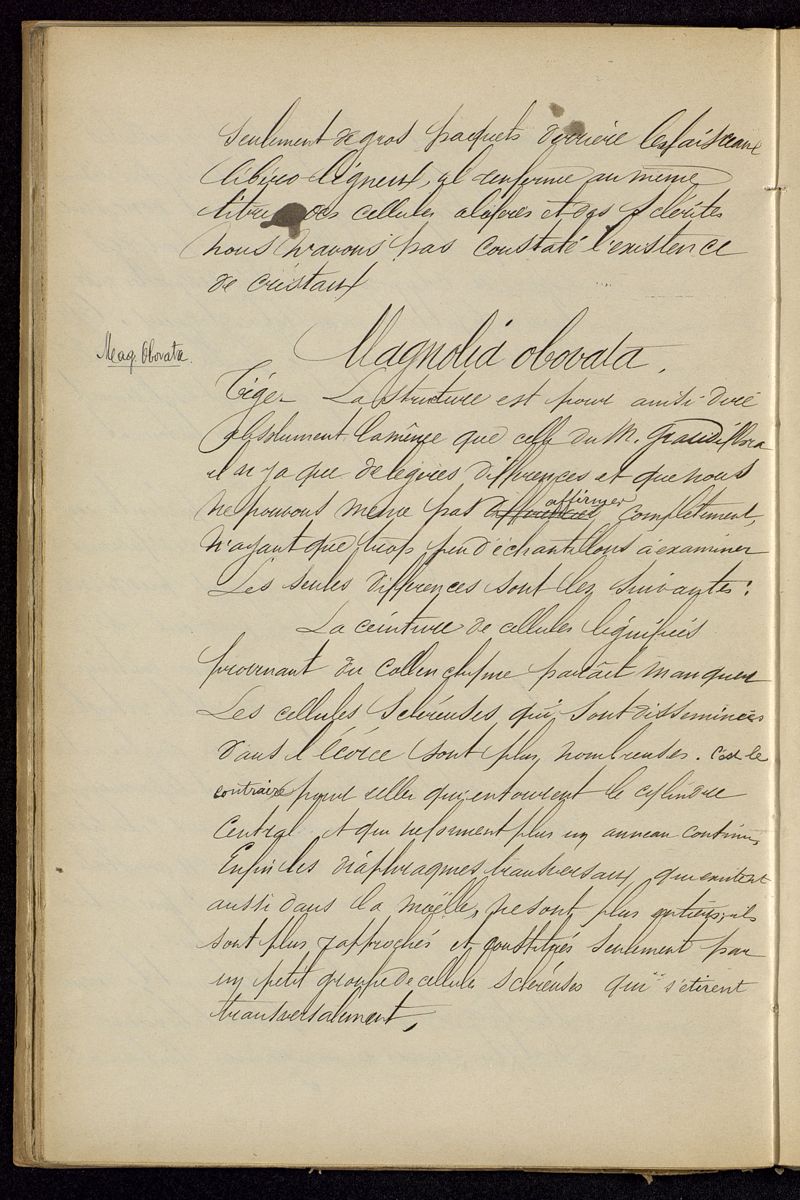 seulement de gros paquets derrière les faisceaux
libéro ligneux, il renferme au même
titre des cellules aligères et des sclérites
nous n'avons pas constaté l'existence
de cristaux
Mag. Obovata.
Magnolia obovata.
Tige - La structure est pour ainsi dire
absolument la même que celle du M. Grandiflora
il n'y a que de légères différences et que nous
ne pouvons même pas affirmer complètement,
n'ayant que trop peu d'échantillons à examiner
Les seules différences sont les suivantes :
La ceinture de cellules lignifiées
provenant du collenchyme paraît manquer
Les cellules scléreuses qui sont disséminées
dans l'écorce sont plus nombreuses. C'est le
contraire pour celles qui entourent le cylindre
central et qui ne forment plus un anneau continu,
Enfin les diaphragmes transversaux, qui existent
aussi dans la moëlle, ne sont plus entiers, ils
sont plus rapprochés et constitués seulement par
un petit groupe de cellules scléreuses qui s'étirent
transversalement,